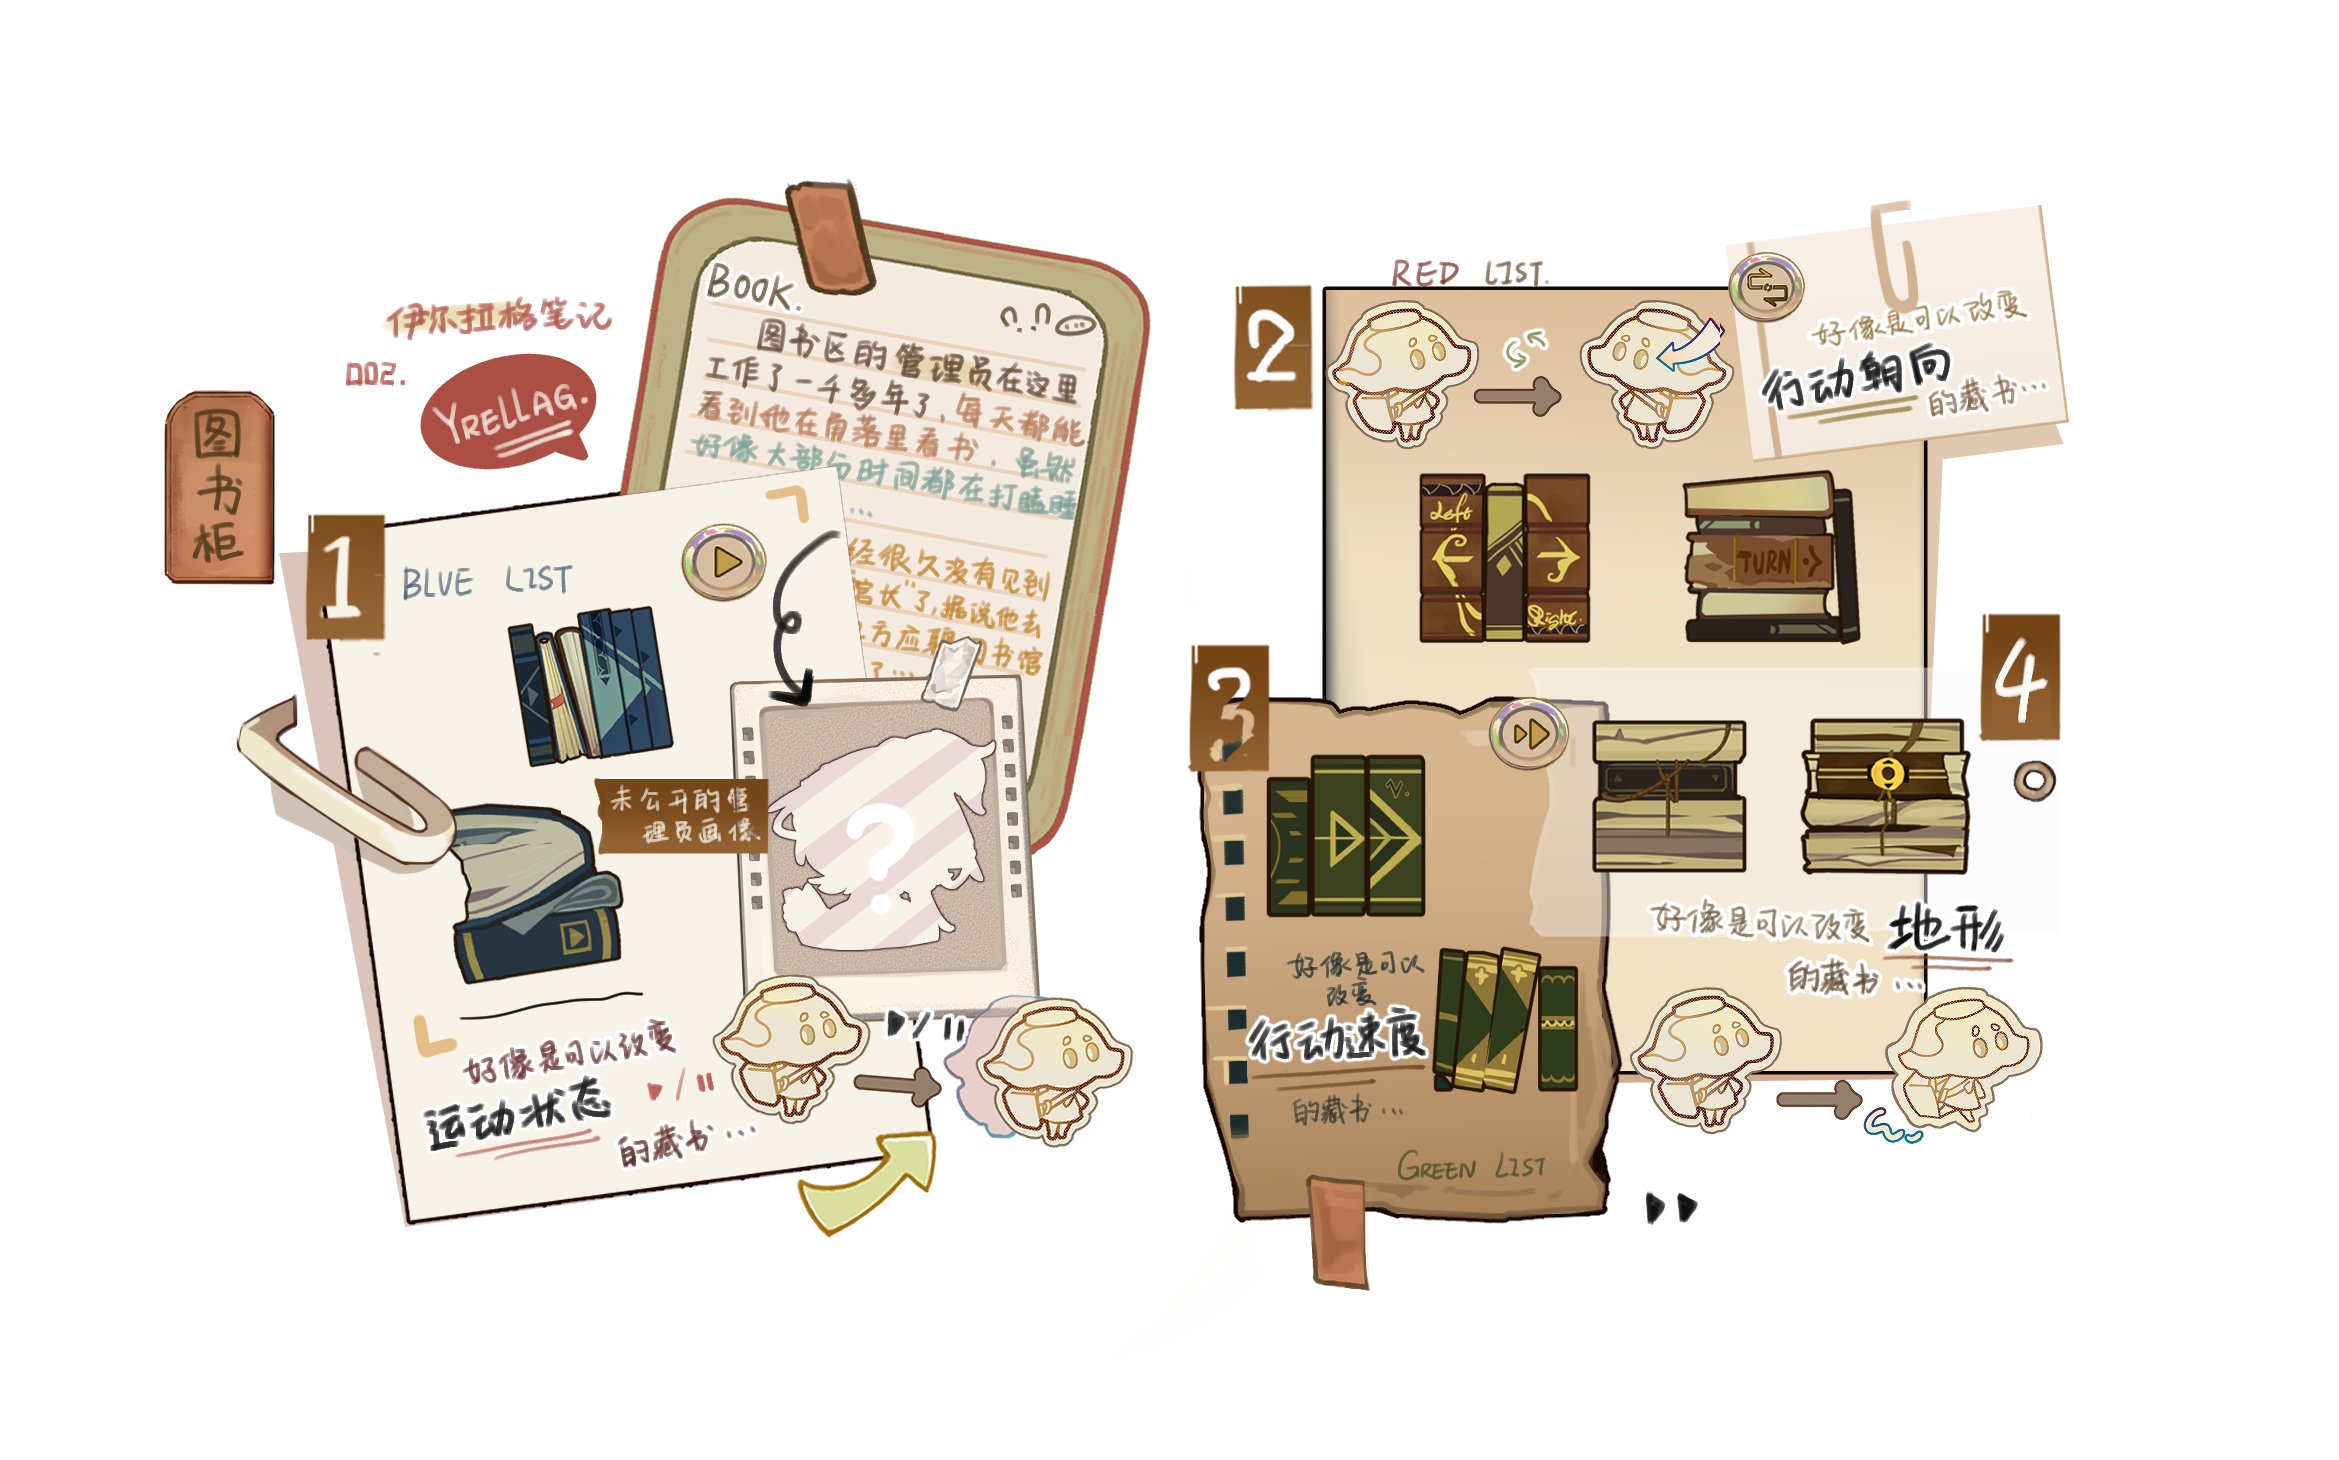 图书柜
伊尔拉格笔记
002.
YRELLAG.
BOOK.
图书区的管理员在这里
工作了一千多年了,每天都能
看到他在角落里看书,虽然
好像大部分时间都在打瞌睡
...
经很久没有见到
馆长”了,据说他去
方应聘 图书馆
了...
1
BLUE LIST
未公开的管
理员画像
?
好像是可以改变
运动状态
的藏书...
2
RED LIST.
好像是可以改变
行动朝向
的藏书...
Left
Right.
TURN
3
V.
好像是可以
改变
行动速度
的藏书...
GREEN LIST
4
好像是可以改变 地形
的藏书...